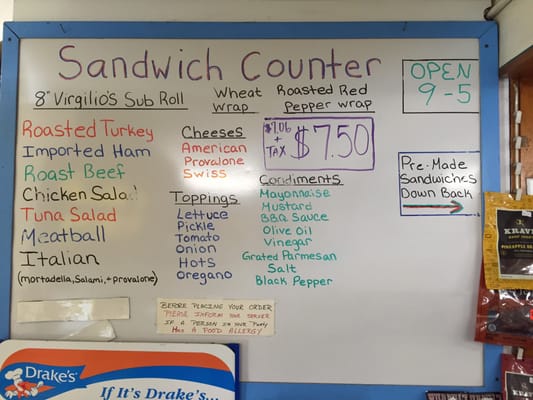 Sandwich Counter
OPEN
9-5
8" Virgilio's Sub Roll
Wheat
wrap
Roasted Red
Pepper wrap
Roasted Turkey
Imported Ham
Roast Beef
Chicken Salad
Tuna Salad
Meatball
Italian
(mortadella, Salami, + provalone)
Cheeses
American
Provalone
Swiss
Toppings
Lettuce
Pickle
Tomato
Onion
Hots
Oregano
$7.06
+
TAX
$7.50
Condiments
Mayonnaise
Mustard
BBQ Sauce
Olive Oil
Vinegar
Grated Parmesan
Salt
Black Pepper
Pre-Made
Sandwiches
Down Back
BEFORE PLACING YOUR ORDER
PLEASE INFORM YOUR SERVER
IF A PERSON IN YOUR PARTY
HAS A FOOD ALLERGY
Drake's
If It's Drake's...
KRAVE